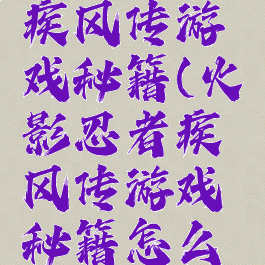 疾风传游
戏秘籍(火
影忍者疾
风传游戏
秘籍怎么